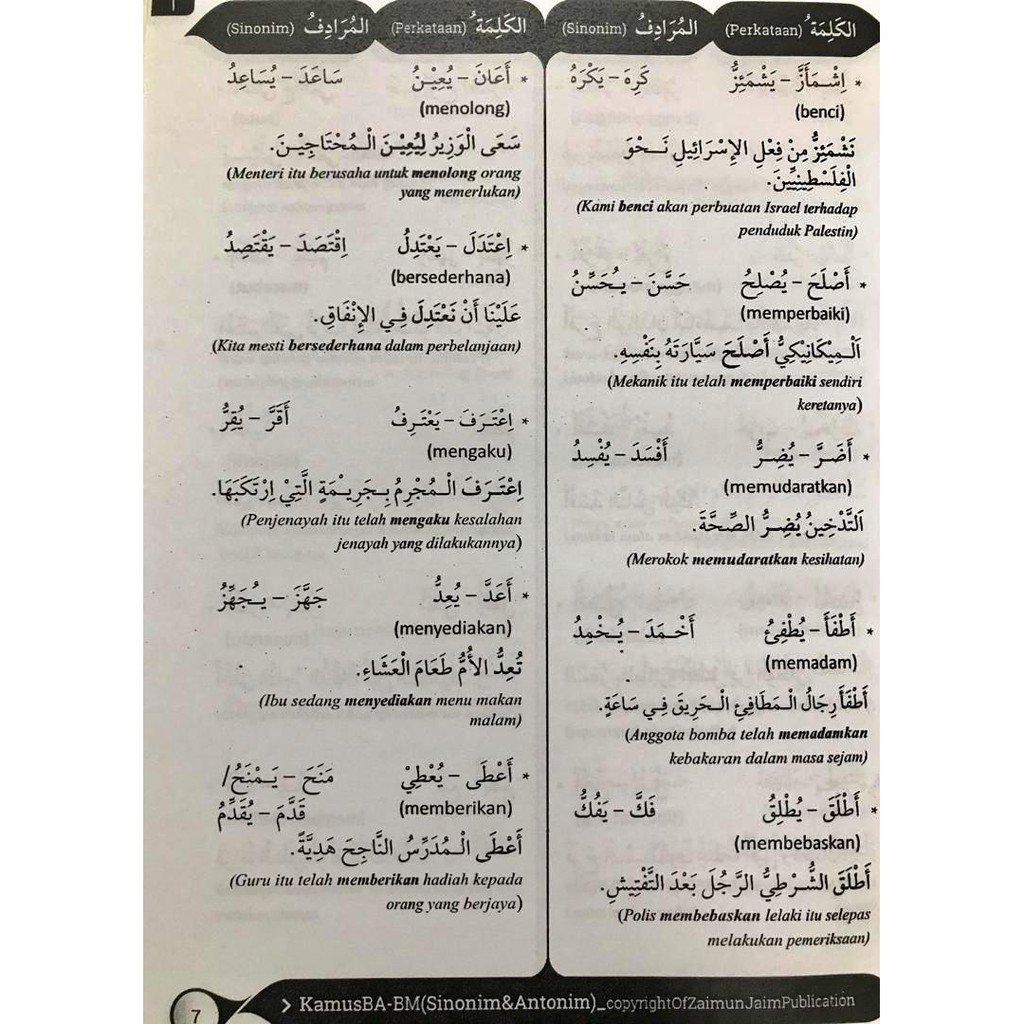 أ
الكَلِمَة (Perkataan) المُرَادِفُ (Sinonim)
* اِشْمَأَزَّ – يَشْمَئِزُّ كَرِهَ – يَكْرَهُ
(benci)
نَشْمَئِزُّ مِنْ فِعْلِ الإِسْرَائِيلِ نَحْوَ
الْفِلَسْطِينِيِّينَ.
(Kami benci akan perbuatan Israel terhadap
penduduk Palestin)
* أَصْلَحَ – يُصْلِحُ حَسَّنَ – يُحَسِّنُ
(memperbaiki)
اَلْمِيْكَانِيْكِيُّ أَصْلَحَ سَيَّارَتَهُ بِنَفْسِهِ.
(Mekanik itu telah memperbaiki sendiri
keretanya)
* أَضَرَّ – يُضِرُّ أَفْسَدَ – يُفْسِدُ
(memudaratkan)
اَلتَّدْخِينُ يُضِرُّ الصِّحَّةَ.
(Merokok memudaratkan kesihatan)
* أَطْفَأَ – يُطْفِئُ أَخْمَدَ – يُخْمِدُ
(memadam)
أَطْفَأَ رِجَالُ الْمَطَافِئِ الْحَرِيقَ فِي سَاعَةٍ.
(Anggota bomba telah memadamkan
kebakaran dalam masa sejam)
* أَطْلَقَ – يُطْلِقُ فَكَّ – يَفُكُّ
(membebaskan)
أَطْلَقَ الشُّرْطِيُّ الرَّجُلَ بَعْدَ التَّفْتِيشِ.
(Polis membebaskan lelaki itu selepas
melakukan pemeriksaan)
الكَلِمَة (Perkataan) المُرَادِفُ (Sinonim)
* أَعَانَ – يُعِيْنُ سَاعَدَ – يُسَاعِدُ
(menolong)
سَعَى الْوَزِيرُ لِيُعِيْنَ الْمُحْتَاجِيْنَ.
(Menteri itu berusaha untuk menolong orang
yang memerlukan)
* اِعْتَدَلَ – يَعْتَدِلُ اِقْتَصَدَ – يَقْتَصِدُ
(bersederhana)
عَلَيْنَا أَنْ نَعْتَدِلَ فِي الإِنْفَاقِ.
(Kita mesti bersederhana dalam perbelanjaan)
* اِعْتَرَفَ – يَعْتَرِفُ أَقَرَّ – يُقِرُّ
(mengaku)
اِعْتَرَفَ الْمُجْرِمُ بِجَرِيْمَةٍ الَّتِيْ اِرْتَكَبَهَا.
(Penjenayah itu telah mengaku kesalahan
jenayah yang dilakukannya)
* أَعَدَّ – يُعِدُّ جَهَّزَ – يُجَهِّزُ
(menyediakan)
تُعِدُّ الأُمُّ طَعَامَ الْعَشَاءِ.
(Ibu sedang menyediakan menu makan
malam)
* أَعْطَى – يُعْطِيْ مَنَحَ – يَمْنَحُ/
(memberikan) قَدَّمَ – يُقَدِّمُ
أَعْطَى الْمُدَرِّسُ النَّاجِحَ هَدِيَّةً.
(Guru itu telah memberikan hadiah kepada
orang yang berjaya)
7 > KamusBA-BM(Sinonim&Antonim)_copyrightOfZaimunJaimPublication